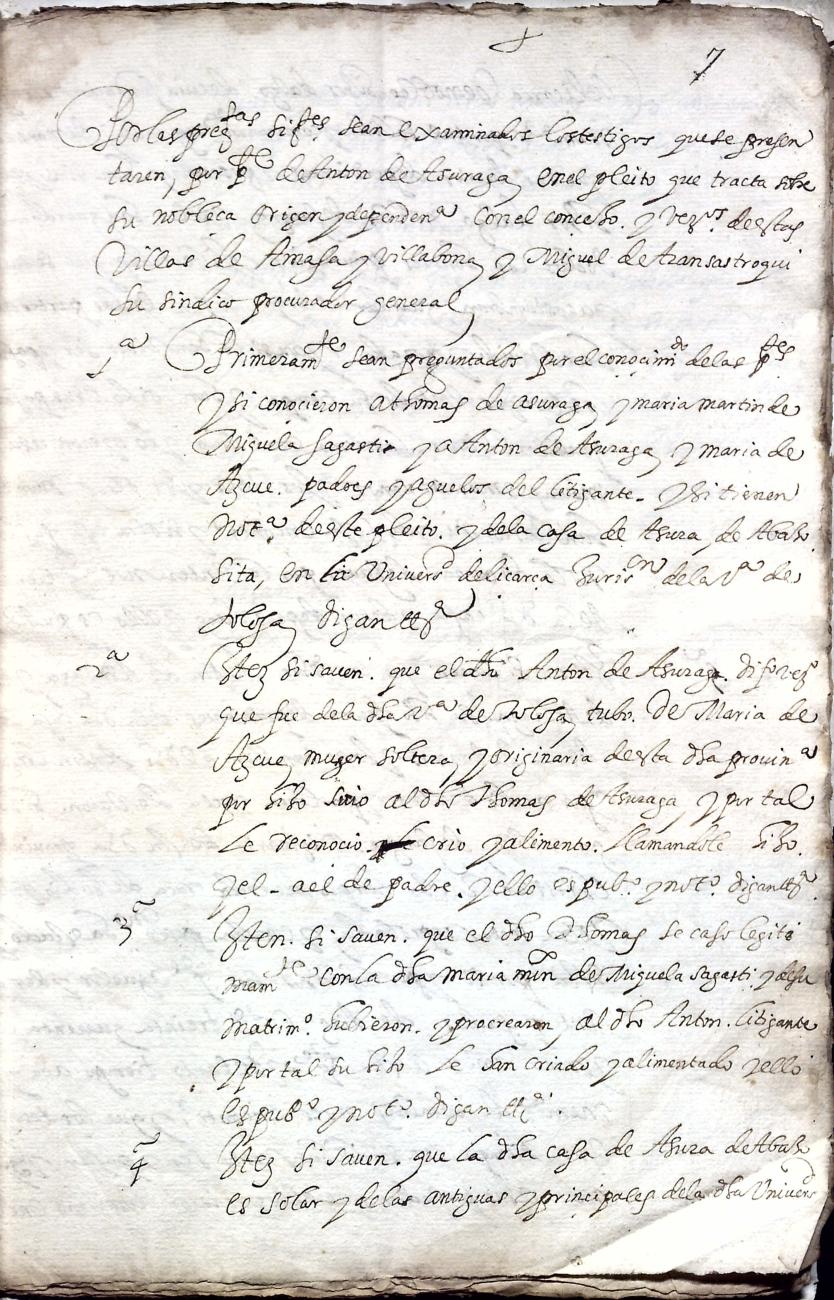 7
Por las preg^tas sig^tes sean examinados los testigos que se presen
taren, por p^te de Anton de Asuraga, en el pleito que tracta sobre
su nobleca origen y dependen^a con el concejo. y vez^os de estas
Villas de Amasa y Villabona, y Miguel de Aransastroqui
su sindico procurador general,
1^a Primeram^te sean preguntados por el conocimi^o de las p^tes
y si conocieron a thomas de asuraga, y maria martin de
Miguela sagasti y a Anton de Asuraga, y maria de
Azcue. padres y aguelos del litigante. y si tienen
not^a de este pleito. y de la casa de Asura, de Abajo
sita, en la Univers^d de licarca Juris^on de la V^a de
tolosa, digan
2^a Yten si saven. que el dho Anton de Asuraga. vez^o
que fue de la dha V^a de tolosa, tubo. De Maria de
Azcue, muger soltera, y originaria de esta dha provin^a
por hijo suio al dho Thomas de Asuraga, y por tal
le reconocio. crio y alimento. llamandole hijo.
y el. a el de padre. y ello es pub^o y not^o. digan
3^a Yten. si saven. que el dho Thomas se caso legiti
mam^te con la dha maria min de Miguela sagasti y de su
matrim^o. hubieron. y procrearon, al dho Anton. litigante
y por tal su hijo le han criado y alimentado y ello
es pub^o y not^o. digan
4^a Yten si saven. que la dha casa de Asura de Abajo
es solar y de las antiguas y principales de la dha Univers^d